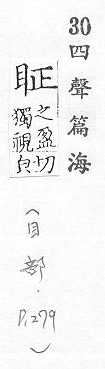 30四聲篇海
眐
之盈切
獨視皃
（目部．P.279）